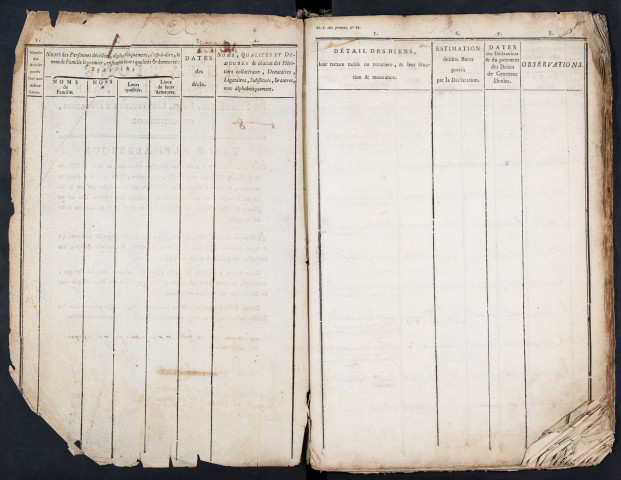 1.
2.
3.
4.
Noms des Personnes décédées, alphabétiquement, c'est-à-dire, le
nom de Famille le premier, ensuite leurs qualités & demeures:
SÇAVOIR;
NOMS
de
Famille.
NOMS
Leurs
qualités.
Lieux
de leurs
demeures.
DATES
des
décès.
NOMS, QUALITÉS ET DE-
MEURES de chacun des Héri-
tiers collatéraux, Donataires,
Légataires, Substitués, & autres,
non alphabétiquement.
5.
6.
7.
8.
DÉTAIL DES BIENS,
leur nature noble ou roturiere, & leur situa-
tion & mouvance.
ESTIMATION
desdits Biens
portés
par la Déclaration.
DATES
des Déclarations
& du paiement
des Droits
de Centieme
Denier.
OBSERVATIONS.